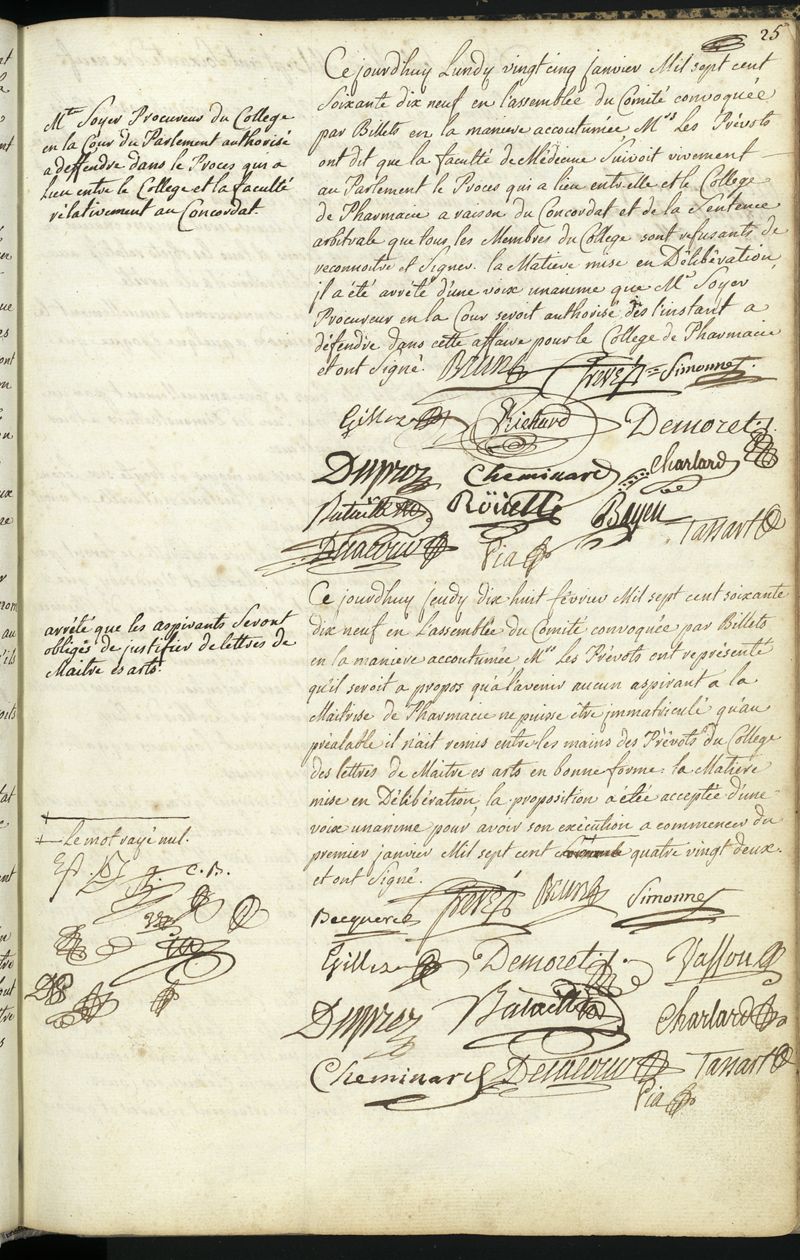 25
Mtre Soyer Procureur du College
en la Cour du Parlement authorisé
a deffendre dans le Proces qui a
Lieu entre le College et la faculté
rélativement au Concordat.
Ce jourdhuy Lundy vingt cinq janvier Mil sept cent
Soixante dix neuf en l'assemblée du Comité convoquée
par Billets en la maniere accoutumée Mrs Les Prévots
ont dit que la faculté de Médecine Suivoit vivement
au Parlement le Proces qui a lieu entr'elle et le College
de Pharmacie a raison du Concordat et de la Sentence
arbitrale que tous les Membres du College sont refusants de
reconnoitre et Signer. la Matiere mise en Délibération,
il a été arrêté d'une voix unanime que Mr Soyer
Procureur en la Cour seroit authorisé dès l'instant a
défendre dans cette affaire pour le College de Pharmacie
et ont Signé. Brun
Trevez Simonnet
Gillet Richard Demoret
Duprez Cheminard Charlard
Bataille Roüelle Bayen Tassart
Delacour Pia
arrêté que les aspirants Seront
obligés de justifier de lettres de
Maitre es arts.
Ce jourdhuy jeudy dix huit février Mil sept cent soixante
dix neuf en L'assemblée du Comité convoquée par Billets
en la maniere accoutumée Mrs Les Prévots ont représenté
qu'il seroit a propos qu'a l'avenir aucun aspirant a la
Maitrise de Pharmacie ne puisse être immatriculé qu'au
préalable il n'ait remis entre les mains des Prévots du College
des lettres de Maitre es arts en bonne forme. la Matiere
mise en Délibération, la proposition a étée acceptée d'une
voix unanime pour avoir son exécution a commencer du
premier janvier Mil sept cent soixante quatre vingt deux.
et ont Signé.
Le mot rayé nul.
C. B.
Becqueret Trevez Brun Simonnet
Gillet Demoret Vassou
Duprez Bataille Charlard
Cheminard Delacour Tassart
Pia